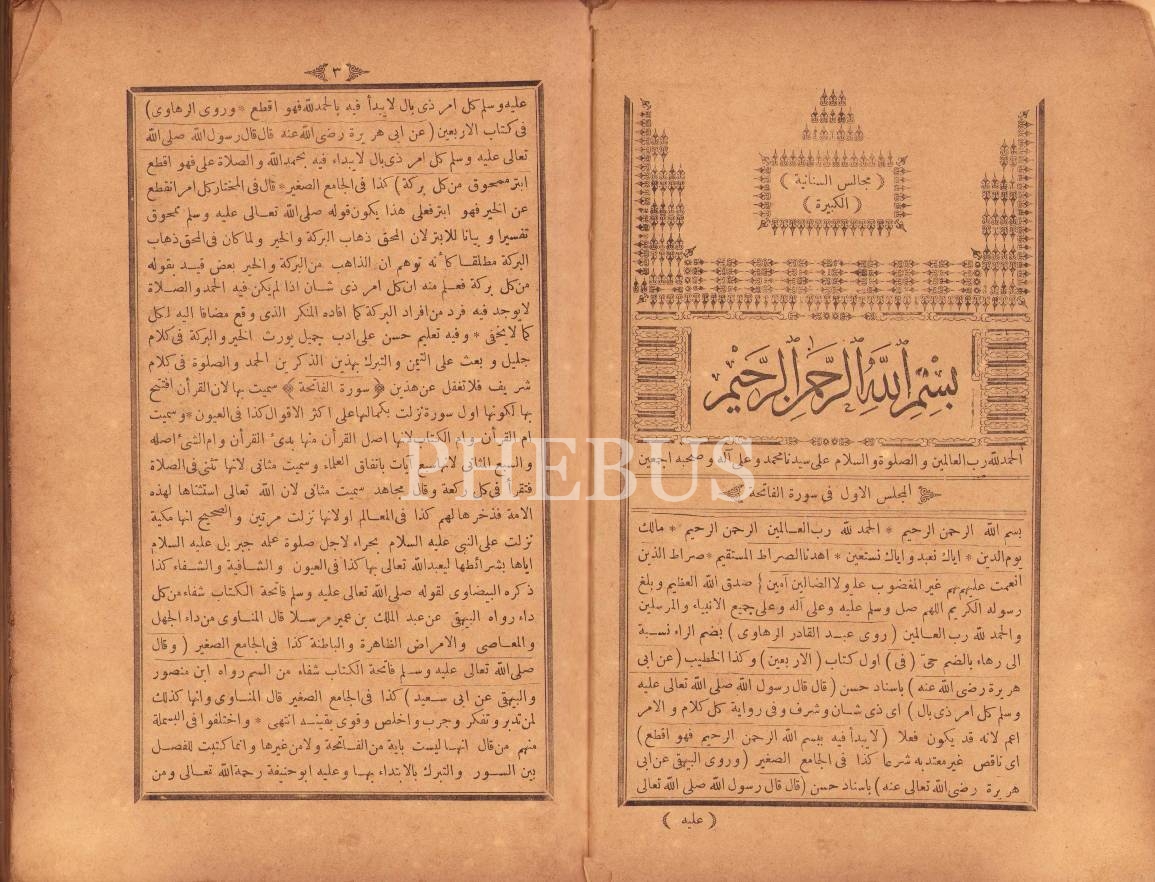 ﴿ مجالس السنانية ﴾
﴿ الكبيرة ﴾
بسم الله الرحمن الرحيم
الحمد لله رب العالمين والصلوة والسلام على سيدنا محمد وعلى آله وصحبه اجمعين
المجلس الاول فى سورة الفاتحة
بسم الله الرحمن الرحيم * الحمد لله رب العالمين الرحمن الرحيم * مالك
يوم الدين * اياك نعبد واياك نستعين * اهدنا الصراط المستقيم * صراط الذين
انعمت عليهم غير المغضوب عليهم ولا الضالين آمين } صدق الله العظيم وبلغ
رسوله الكريم اللهم صل وسلم عليه وعلى آله وعلى جميع الانبياء والمرسلين
والحمد لله رب العالمين ( روى عبد القادر الرهاوى ) بضم الراء نسبة
الى رهاء بالضم حىّ ( فى ) اول كتاب ( الاربعين ) وكذا الخطيب ( عن ابى
هريرة رضى الله عنه ) باسناد حسن ( قال قال رسول الله صلى الله تعالى عليه
وسلم كل امر ذى بال ) اى ذى شان وشرف وفى رواية كل كلام والامر
اعم لانه قد يكون فعلا ( لا يبدأ فيه ببسم الله الرحمن الرحيم فهو اقطع )
اى ناقص غير معتد به شرعا كذا فى الجامع الصغير ( وروى البيهقى عن ابى
هريرة رضى الله تعالى عنه ) باسناد حسن ( قال قال رسول الله صلى الله تعالى
﴿ عليه ﴾
٣
عليه وسلم كل امر ذى بال لا يبدأ فيه بالحمد لله فهو اقطع * وروى الرهاوى )
فى كتاب الاربعين ( عن ابى هريرة رضى الله عنه قال قال رسول الله صلى الله
تعالى عليه وسلم كل امر ذى بال لا يبداء فيه بحمد الله والصلاة على فهو اقطع
ابتر ممحوق من كل بركة ) كذا فى الجامع الصغير * قال فى المختار كل امر انقطع
عن الخير فهو ابتر فعلى هذا يكون قوله صلى الله تعالى عليه وسلم ممحوق
تفسيرا وبيانا للابتر لان المحق ذهاب البركة والخير ولما كان فى المحق ذهاب
البركة مطلقا كأنه توهم ان الذاهب من البركة والخير بعض قيد بقوله
من كل بركة فعلم منه ان كل امر ذى شان اذا لم يكن فيه الحمد والصلاة
لا يوجد فيه فرد من افراد البركة كما افاده المنكر الذى وقع مضافا اليه لكل
كما لا يخفى * وفيه تعليم حسن على ادب جميل يورث الخير والبركة فى كلام
جليل وبعث على التيمن والتبرك بهذين الذكرين الحمد والصلوة فى كلام
شريف فلا تغفل عن هذين ﴿ سورة الفاتحة ﴾ سميت بها لان القرأن افتتح
بها لكونها اول سورة نزلت بكمالها على اكثر الاقوال كذا فى العيون * وسميت
ام القرأن وام الكتاب لانها اصل القرأن منها بدئ القرأن وام الشئ اصله
والسبع المثانى لانها سبع آيات باتفاق العلماء وسميت مثانى لانها تثنى فى الصلاة
فتقرأ فى كل ركعة وقال مجاهد سميت مثانى لان الله تعالى استثناها لهذه
الامة فذخرها لهم كذا فى المعالم اولانها نزلت مرتين والصحيح انها مكية
نزلت على النبى عليه السلام بحراء لاجل صلوة علمه جبريل عليه السلام
اياها بشرائطها ليعبد الله تعالى بها كذا فى العيون والشافية والشفاء كذا
ذكره البيضاوى لقوله صلى الله تعالى عليه وسلم فاتحة الكتاب شفاء من كل
داء رواه البيهقى عن عبد الملك بن عمير مرسلا قال المناوى من داء الجهل
والمعاصى والامراض الظاهرة والباطنة كذا فى الجامع الصغير ( وقال
صلى الله تعالى عليه وسلم فاتحة الكتاب شفاء من السم رواه ابن منصور
والبيهقى عن ابى سعيد ) كذا فى الجامع الصغير قال المناوى وانها كذلك
لمن تدبر وتفكر وجرب واخلص وقوى يقينه انتهى * واختلفوا فى البسملة
منهم من قال انها ليست باية من الفاتحة ولا من غيرها وانما كتبت للفصل
بين السور والتبرك بالابتداء بها وعليه ابو حنيفة رحمة الله تعالى ومن
PHEBUS